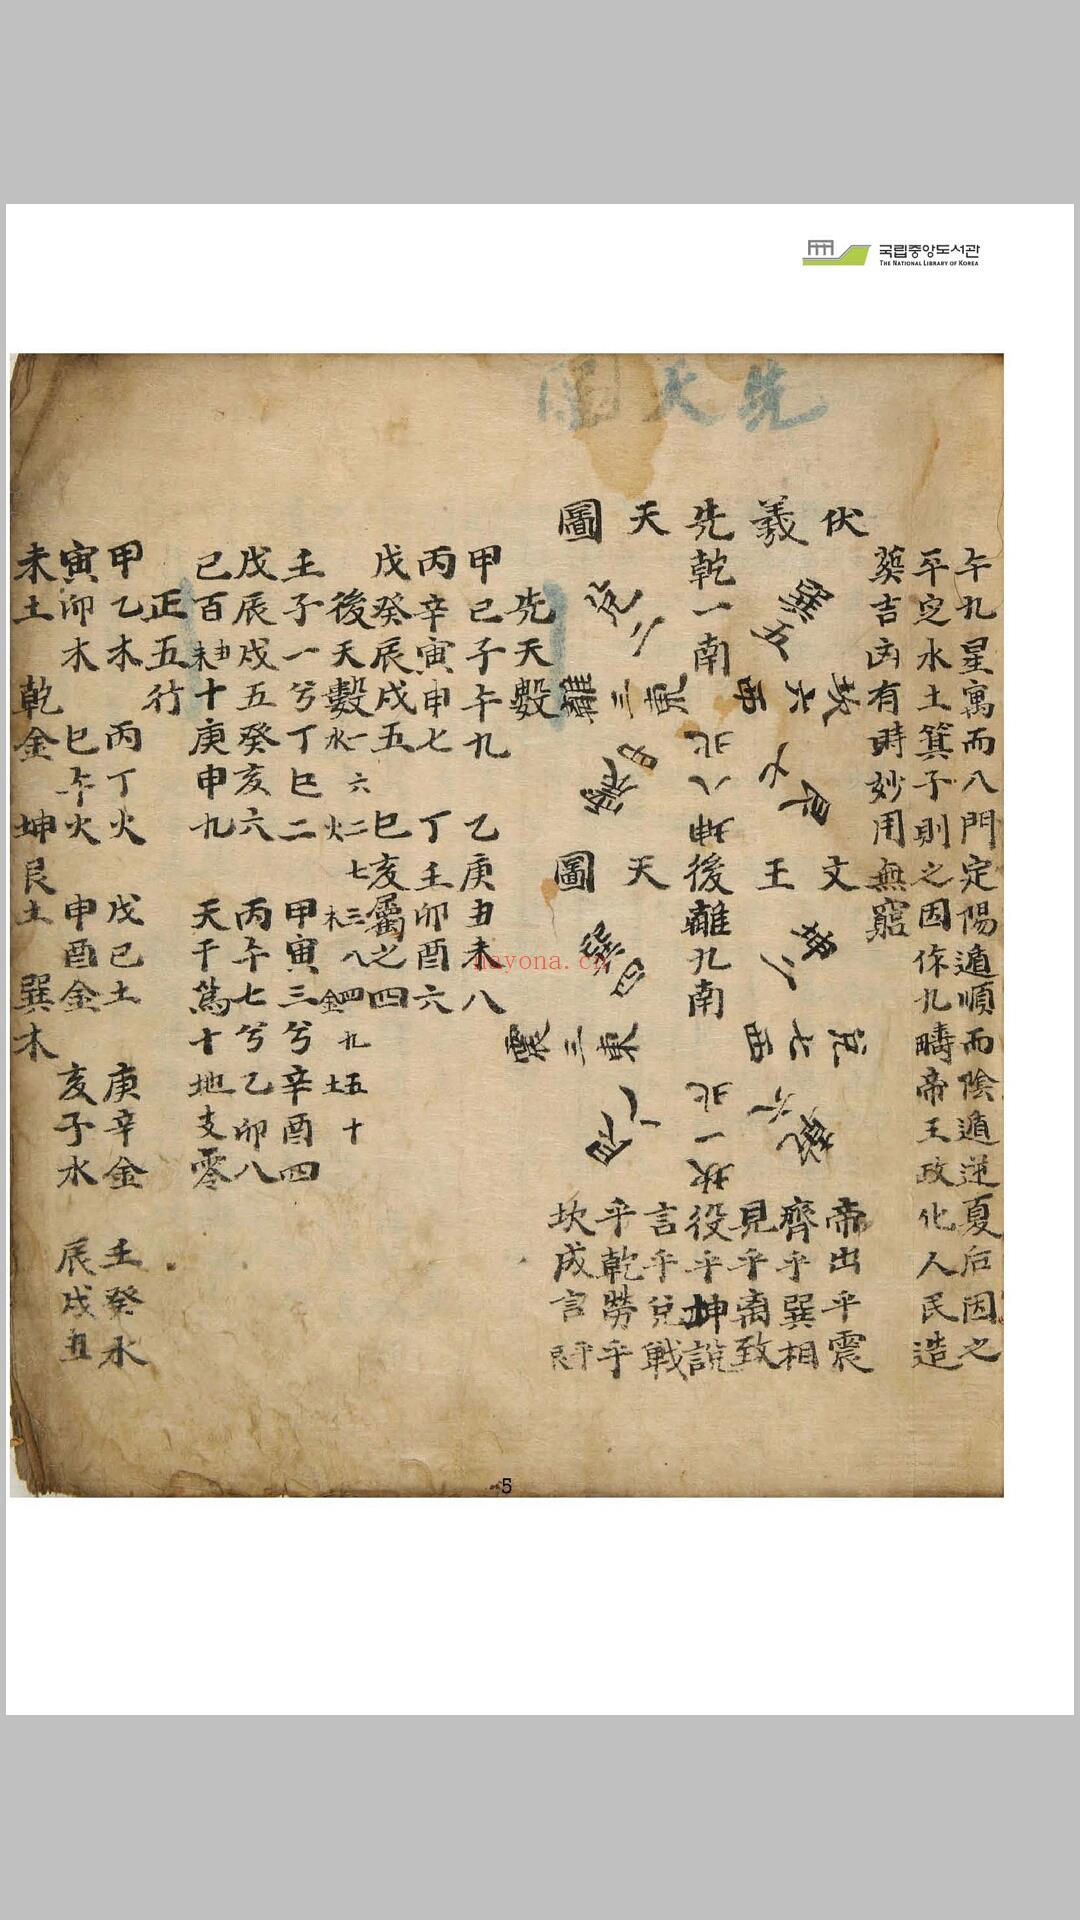 국립중앙도서관
THE NATIONAL LIBRARY OF KOREA
先天圖
午九星寓而八門定陽遁順而陰遁逆夏后因之
平定水土箕子則之因作九疇帝王政化人民造
葬吉凶有時妙用無窮
伏羲先天圖
乾一南
巽五
兌二
坎六西
離三東
艮七
震四
北八坤
文王後天圖
離九南
坤二
巽四
兌七西
震三東
乾六
艮八
北一坎
帝出乎震
齊乎巽相
見乎离致
役乎坤說
言乎兌戰
乎乾勞乎
坎成言乎艮
先天數
甲己子午九 乙庚丑未八
丙辛寅申七 丁壬卯酉六
戊癸辰戌五 巳亥屬之四
後天數 水一六 火二七 木三八 金四九 土五十
壬子一兮丁巳二 甲寅三兮辛酉四
戊辰戌五癸亥六 丙午七兮乙卯八
己百丑未十庚申九 天干篤十地支零
正五行
甲乙木 丙丁火 戊己土 庚辛金 壬癸水
寅卯木 巳午火 申酉金 亥子水 辰戌丑
未土 乾金 坤艮土 巽木
nayona.cn
5